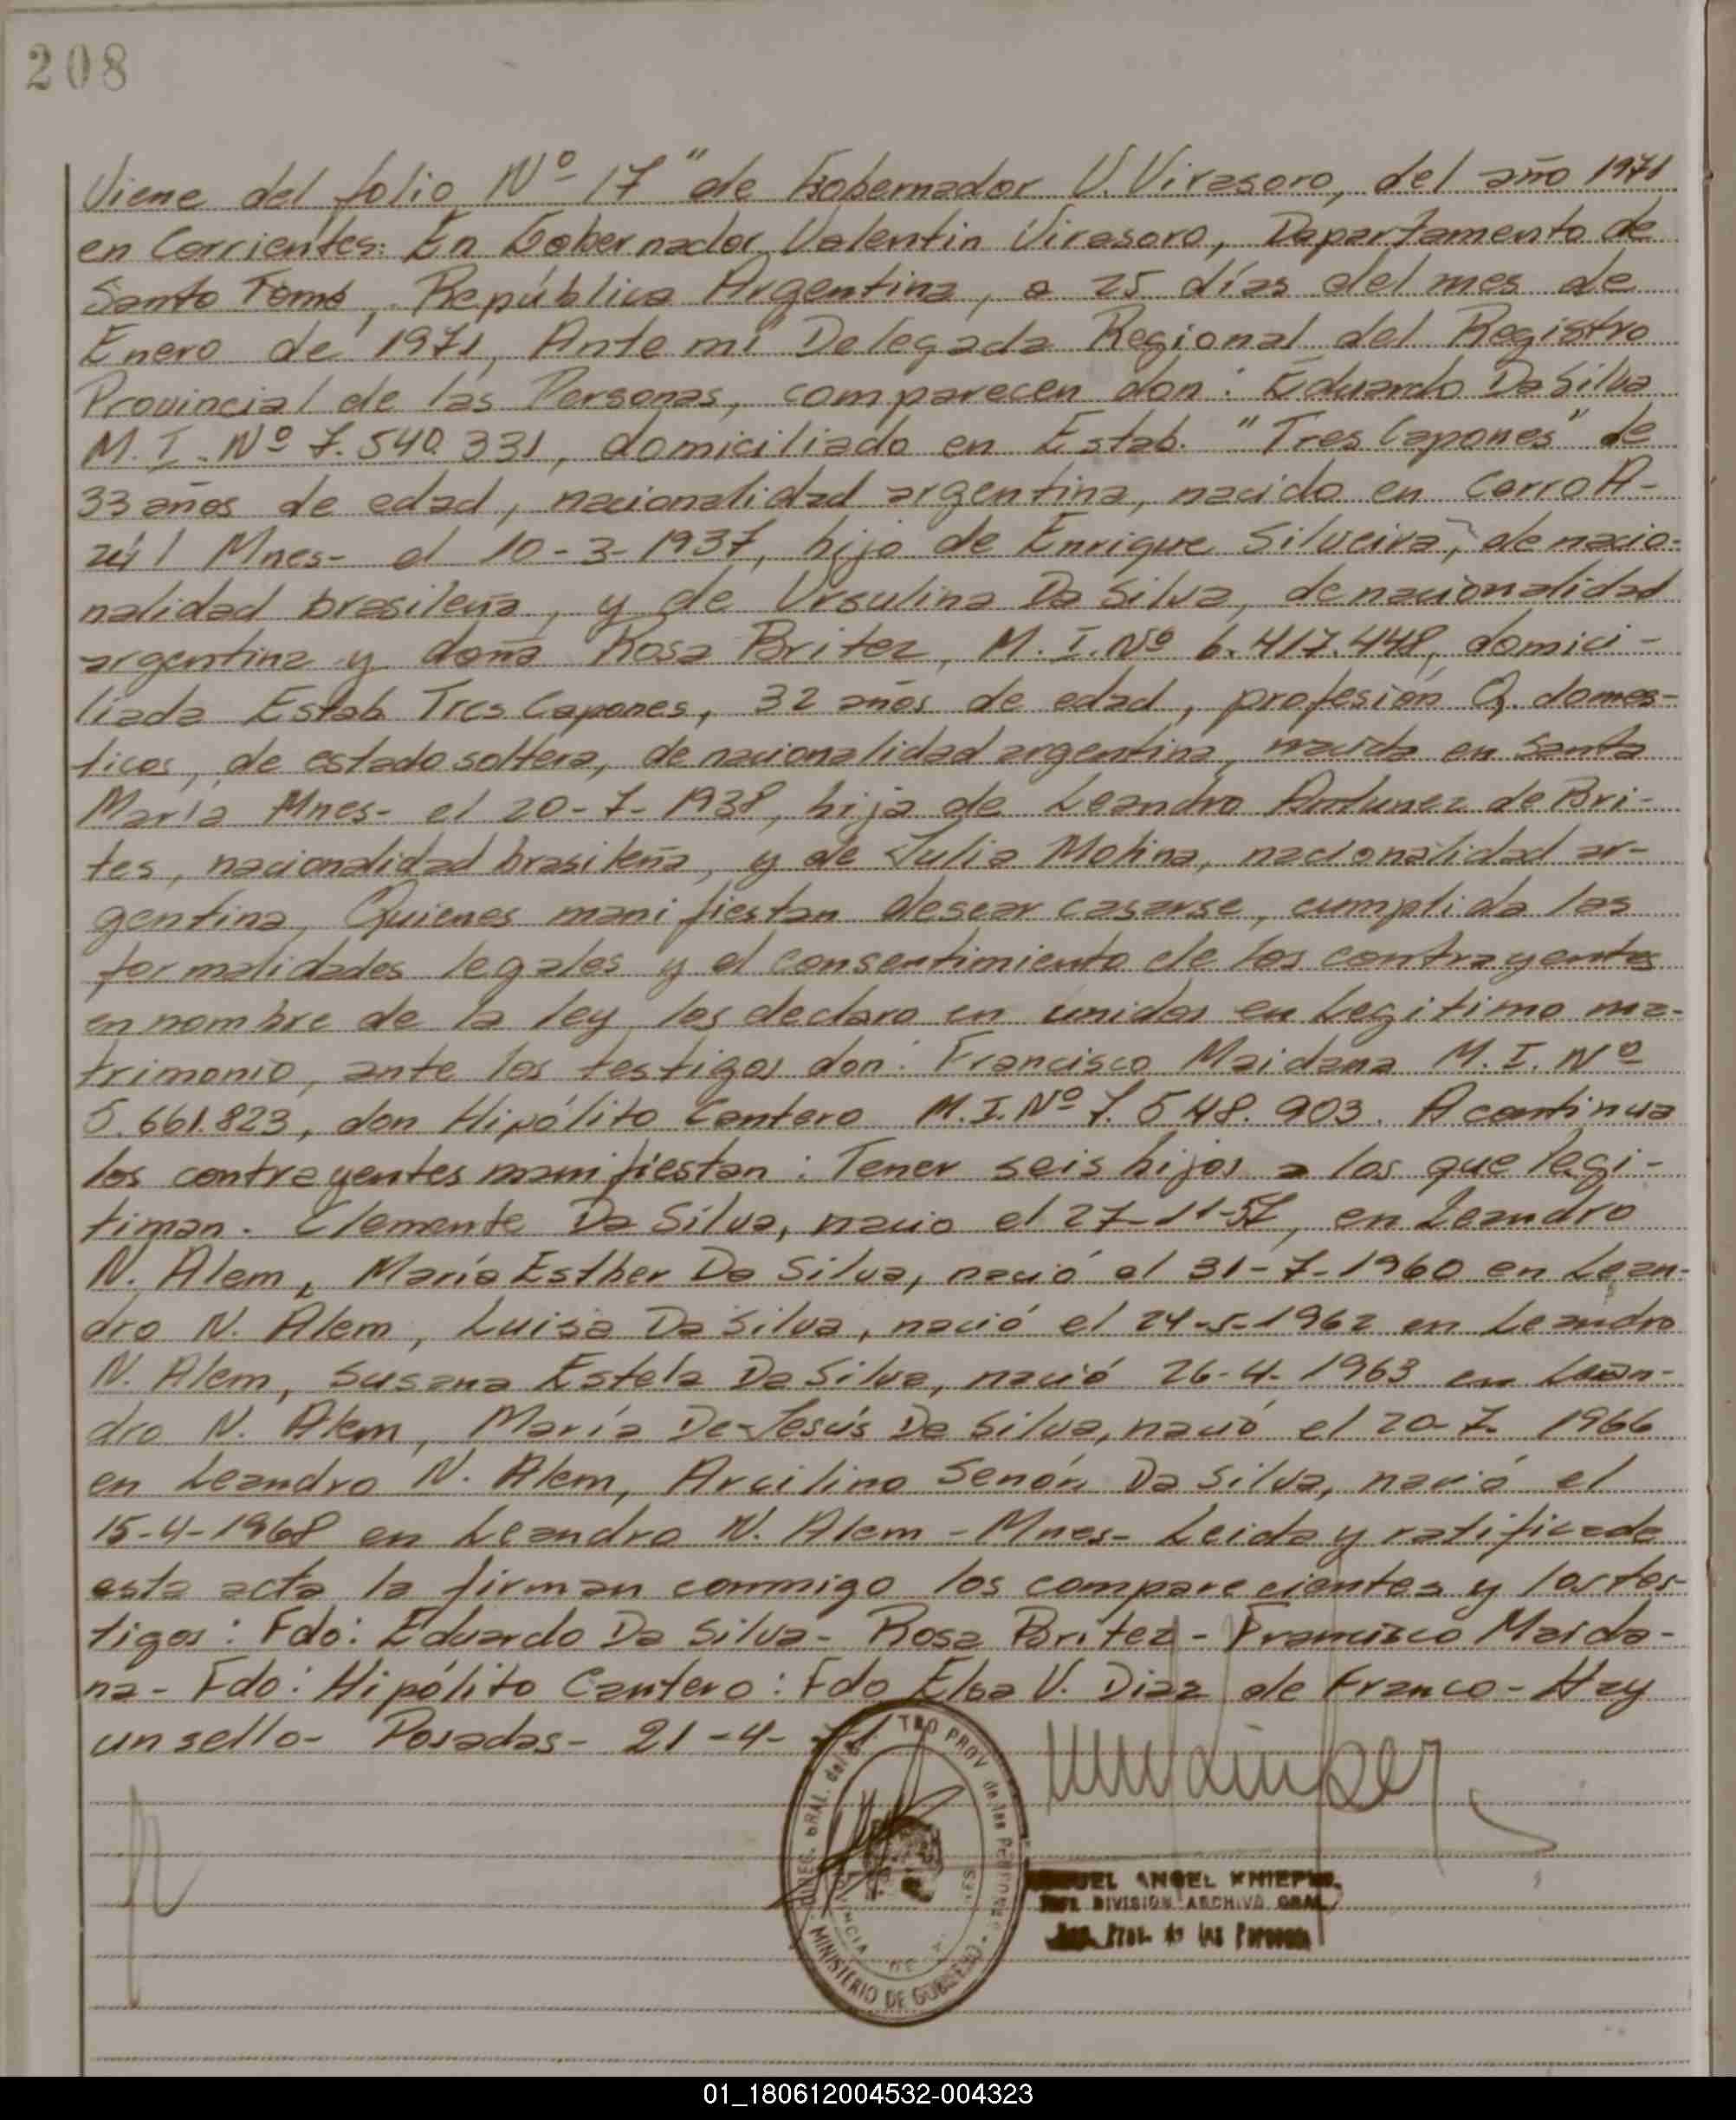 208
Viene del folio Nº 17" de Gobernador V. Virasoro, del año 1971
en Corrientes: En Gobernador Valentin Virasoro, Departamento de
Santo Tomé, República Argentina, a 25 días del mes de
Enero de 1971, Ante mi Delegada Regional del Registro
Provincial de las Personas, comparecen don: Eduardo Da Silva
M. I. Nº 7.540.331, domiciliado en Estab. "Tres Capones" de
33 años de edad, nacionalidad argentina, nacido en Cerro A-
zúl Mnes- el 10-3-1937, hijo de Enrique Silveira, de nacio-
nalidad brasileña, y de Ursulina Da Silva, de nacionalidad
argentina y doña Rosa Britez, M. I. Nº 6.417.448, domici-
liada Estab Tres Capones, 32 años de edad, profesión Q. domes-
ticos, de estado soltera, de nacionalidad argentina, nacida en Santa
María Mnes- el 20-7-1938, hija de Leandro Antunez de Bri-
tes, nacionalidad brasileña, y de Julia Molina, nacionalidad ar-
gentina, Quienes manifiestan desear casarse, cumplida las
formalidades legales y el consentimiento de los contrayentes
en nombre de la ley los declaro en unidos en Legitimo ma-
trimonio, ante los testigos don: Francisco Maidana M. I. Nº
5.661.823, don Hipólito Cantero M. I. Nº 7.548.903. A continua
los contrayentes manifiestan: Tener seis hijos a los que legi-
timan. Clemente Da Silva, nacio el 27-11-57, en Leandro
N. Alem, María Esther Da Silva, nació el 31-7-1960 en Lean-
dro N. Alem, Luisa Da Silva, nació el 24-5-1962 en Leandro
N. Alem, Susana Estela Da Silva, nació 26-4-1963 en Lean-
dro N. Alem, María De Jesús Da Silva, nació el 20-7-1966
en Leandro N. Alem, Arcilino Senón Da Silva, nació el
15-4-1968 en Leandro N. Alem - Mnes- Leida y ratificada
esta acta la firman conmigo los comparecientes y los tes-
tigos: Fdo: Eduardo Da Silva- Rosa Britez- Francisco Maida-
na- Fdo: Hipólito Cantero: Fdo Elsa V. Diaz de Franco- Hay
un sello- Posadas- 21-4-71
DIREC. GRAL. del TRO PROV de las Personas
MINISTERIO DE GOBIERNO
ANGEL KNIEPER
DIVISION ARCHIVO GRAL
Prov. de las Personas
01_180612004532-004323